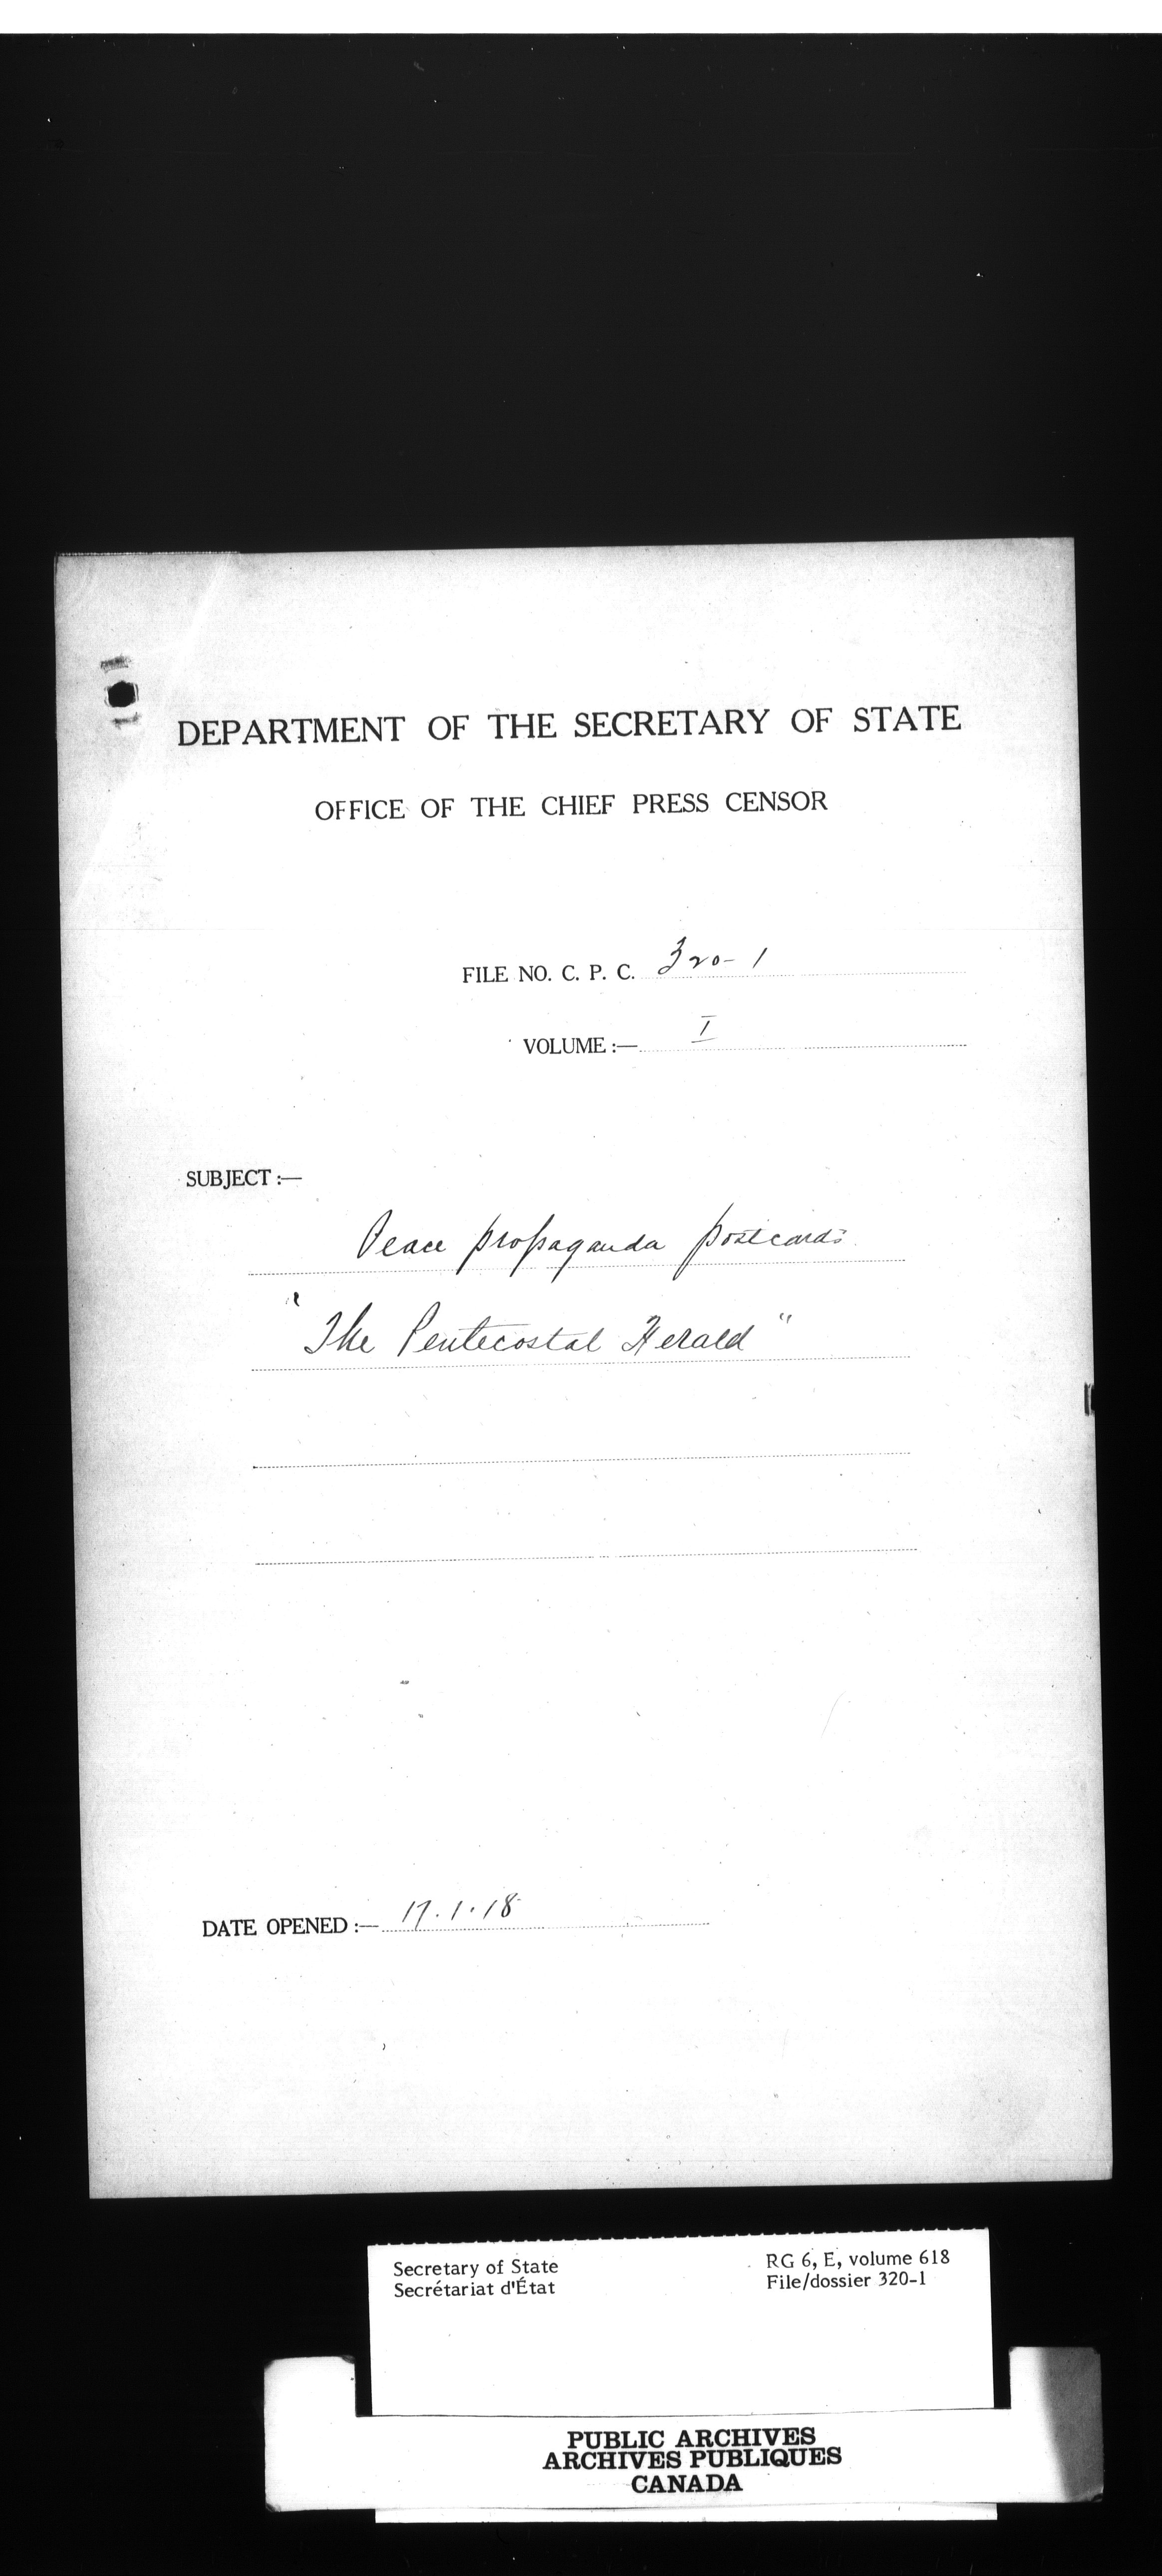 DEPARTMENT OF THE SECRETARY OF STATE
OFFICE OF THE CHIEF PRESS CENSOR
FILE NO. C. P. C. 320-1
VOLUME :— I
SUBJECT :—
Peace propaganda postcards
"The Pentecostal Herald"
DATE OPENED :— 17.1.18
Secretary of State RG 6, E, volume 618
Secrétariat d'État File/dossier 320-1
PUBLIC ARCHIVES
ARCHIVES PUBLIQUES
CANADA